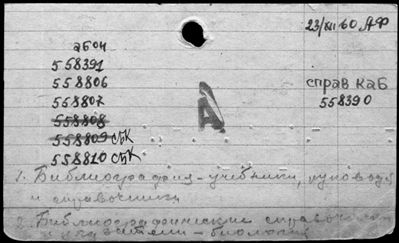 23/XII 60 АФ
абон
558391
558806
558807
558808
558809 СБК
558810 СБК
справ каб
558390
А
1. Библиография - учебники, руковод
и справочники
2. Библиографические справочники
- биология